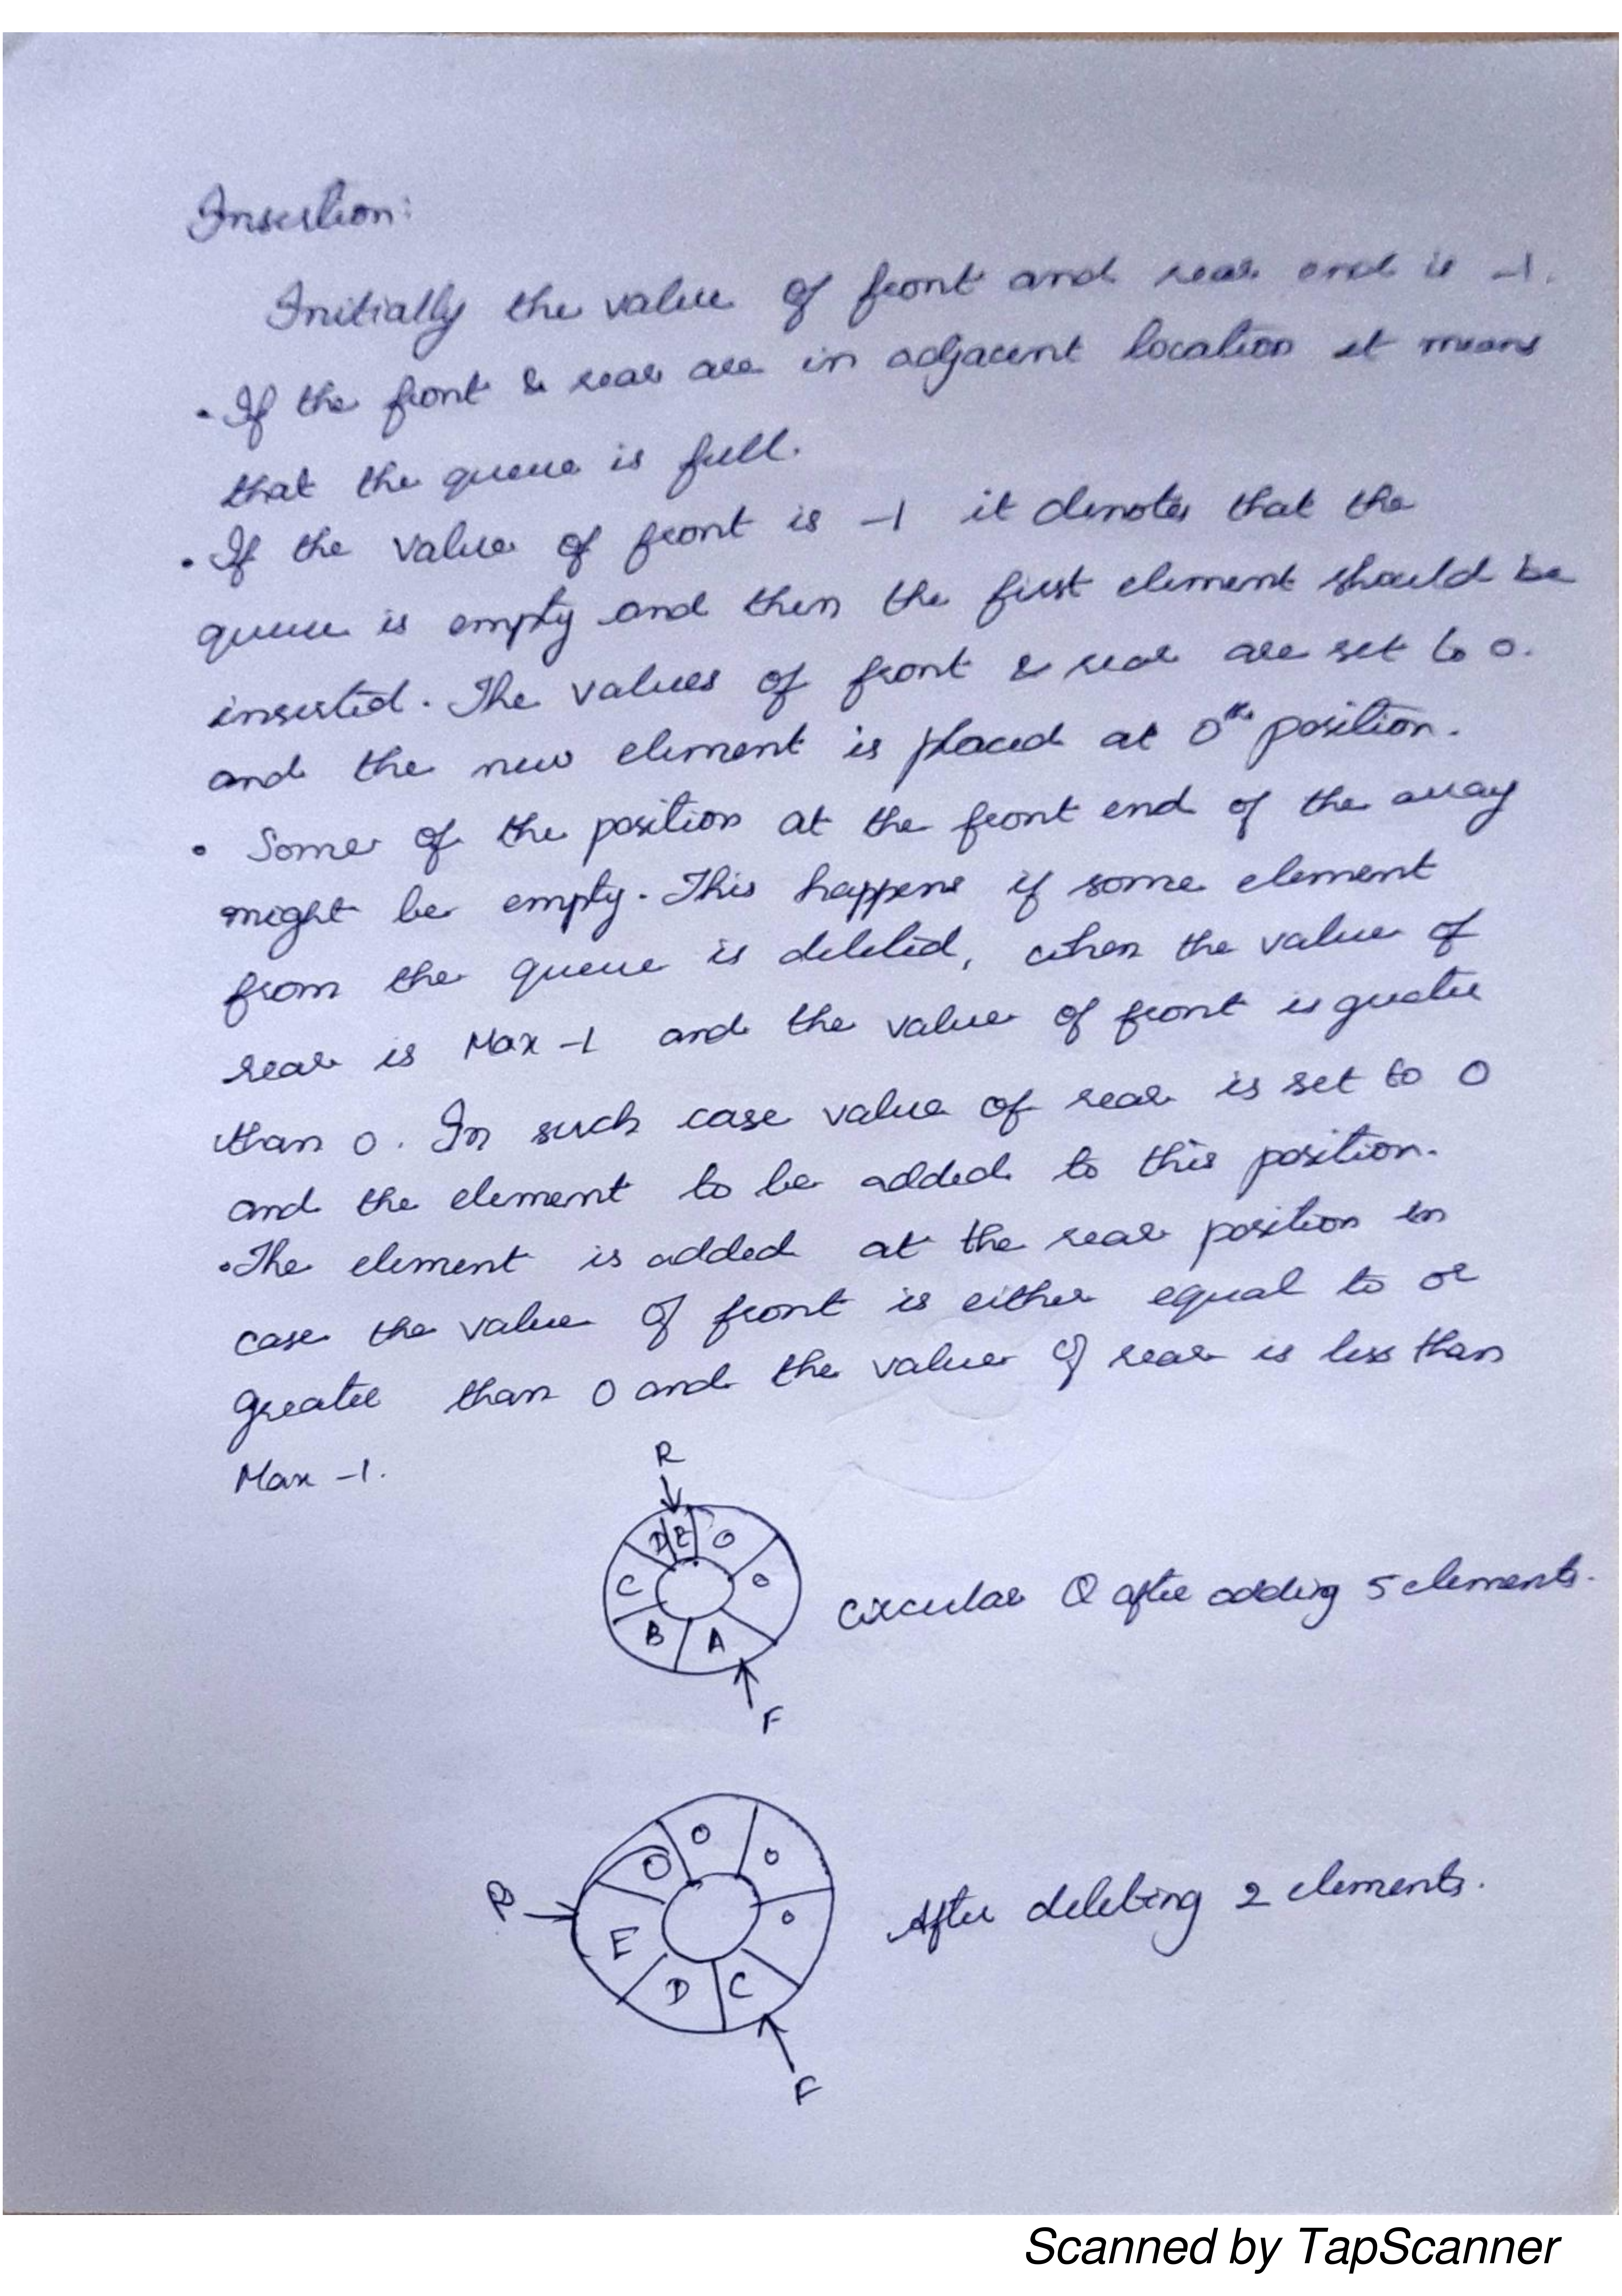 Insertion:
Initially the value of front and rear end is -1.
• If the front & rear are in adjacent location it means
that the queue is full.
• If the value of front is -1 it denotes that the
queue is empty and then the first element should be
inserted. The values of front & rear are set to 0.
and the new element is placed at 0th position.
• Some of the position at the front end of the array
might be empty. This happens if some element
from the queue is deleted, when the value of
rear is Max -1 and the value of front is greater
than 0. In such case value of rear is set to 0
and the element to be added to this position.
• The element is added at the rear position in
case the value of front is either equal to or
greater than 0 and the value of rear is less than
Max -1.
R
D E O
C O
B A
F
Circular Q after adding 5 elements.
O O
O
R
E O
D C
F
After deleting 2 elements.
Scanned by TapScanner